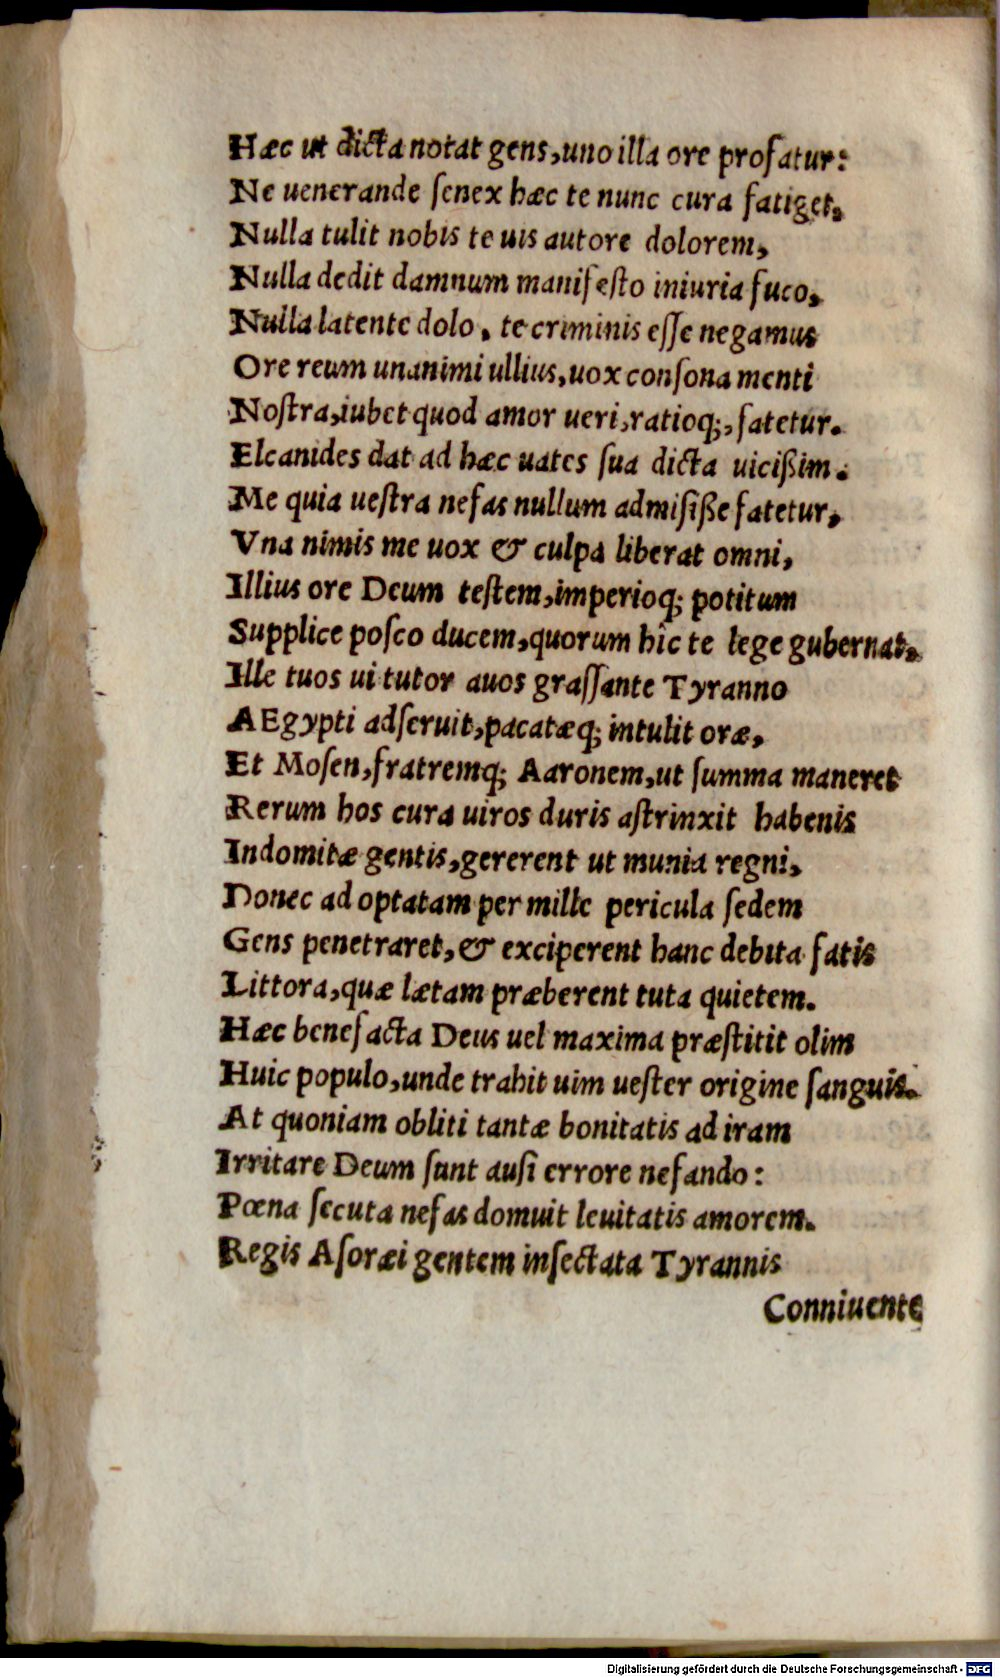 Hæc ut dicta notat gens, uno illa ore profatur:
Ne uenerande ſenex hæc te nunc cura fatiget,
Nulla tulit nobis te uis autore dolorem,
Nulla dedit damnum manifeſto iniuria fuco,
Nulla latente dolo, te criminis eſſe negamus
Ore reum unanimi ullius, uox conſona menti
Noſtra, iubet quod amor ueri, ratioq;, fatetur.
Elcanides dat ad hæc uates ſua dicta uicißim.
Me quia ueſtra nefas nullum admiſiße fatetur,
Vna nimis me uox & culpa liberat omni,
Illius ore Deum teſtem, imperioq; potitum
Supplice poſco ducem, quorum hîc te lege gubernat,
Ille tuos ui tutor auos graſſante Tyranno
AEgypti adſeruit, pacatæq; intulit oræ,
Et Moſen, fratremq; Aaronem, ut ſumma maneret
Rerum hos cura uiros duris aſtrinxit habenis
Indomitæ gentis, gererent ut munia regni,
Donec ad optatam per mille pericula ſedem
Gens penetraret, & exciperent hanc debita fatis
Littora, quæ lætam præberent tuta quietem.
Hæc benefacta Deus uel maxima præſtitit olim
Huic populo, unde trahit uim ueſter origine ſanguis.
At quoniam obliti tantæ bonitatis ad iram
Irritare Deum ſunt auſi errore nefando:
Pœna ſecuta nefas domuit leuitatis amorem.
Regis Aſoræi gentem inſectata Tyrannis
Conniuente
Digitalisierung gefördert durch die Deutsche Forschungsgemeinschaft - DFG